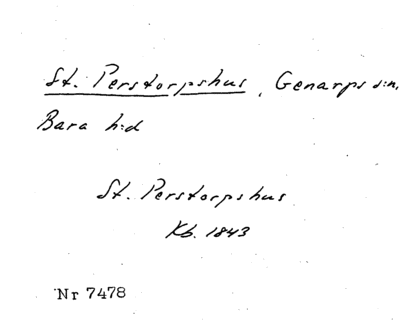 St. Perstorpshus, Genarps s:n,
Bara h:d
St. Perstorpshus
Kb. 1843
Nr 7478